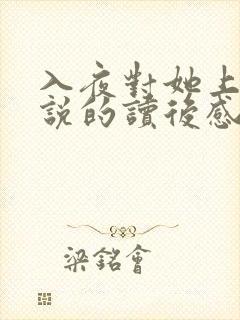 入夜對她上
說的讀後感
梁銘會